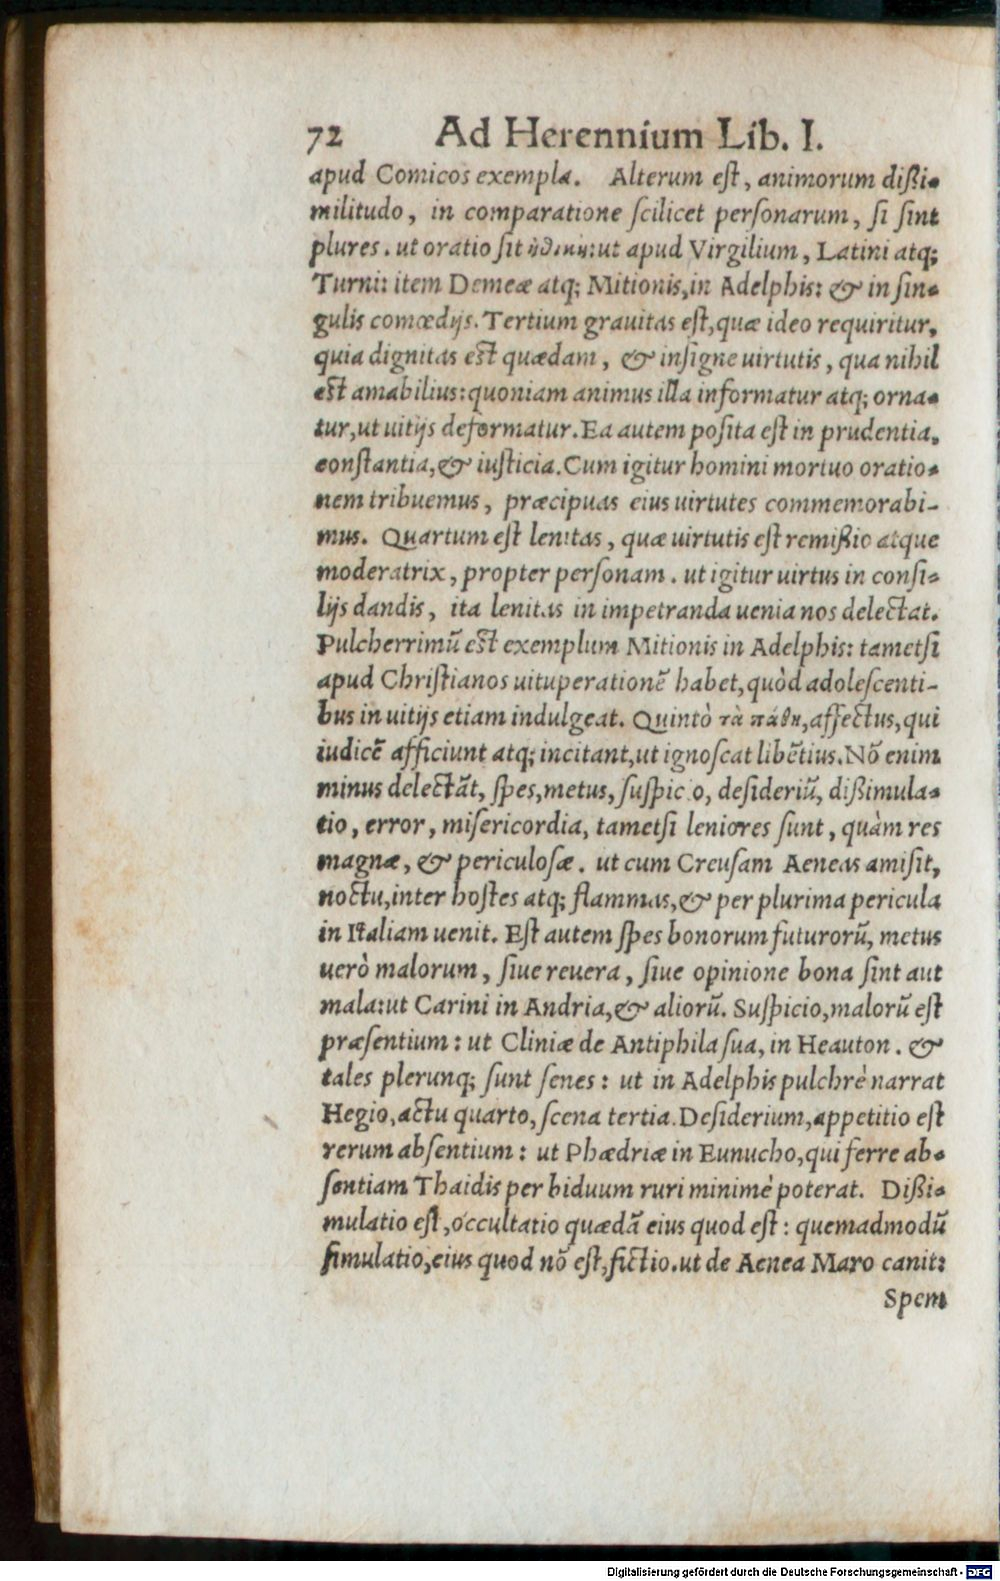 72 Ad Herennium Lib. I.
apud Comicos exempla. Alterum est, animorum dißi-
militudo, in comparatione scilicet personarum, si sint
plures. ut oratio sit ἠθική: ut apud Virgilium, Latini atq;
Turni: item Demeæ atq; Mitionis, in Adelphis: & in sin-
gulis comœdijs. Tertium grauitas est, quæ ideo requiritur,
quia dignitas est quædam, & insigne uirtutis, qua nihil
est amabilius: quoniam animus illa informatur atq; orna-
tur, ut uitijs deformatur. Ea autem posita est in prudentia,
constantia, & iusticia. Cum igitur homini mortuo oratio-
nem tribuemus, præcipuas eius uirtutes commemorabi-
mus. Quartum est lenitas, quæ uirtutis est remißio atque
moderatrix, propter personam. ut igitur uirtus in consi-
lijs dandis, ita lenitas in impetranda uenia nos delectat.
Pulcherrimū est exemplum Mitionis in Adelphis: tametsi
apud Christianos uituperationē habet, quòd adolescenti-
bus in uitijs etiam indulgeat. Quintò τὰ πάθη, affectus, qui
iudicē afficiunt atq; incitant, ut ignoscat libētius. Nō enim
minus delectāt, spes, metus, suspicio, desideriū, dißimula-
tio, error, misericordia, tametsi leniores sunt, quàm res
magnæ, & periculosæ. ut cum Creusam Aeneas amisit,
noctu, inter hostes atq; flammas, & per plurima pericula
in Italiam uenit. Est autem spes bonorum futurorū, metus
uerò malorum, siue reuera, siue opinione bona sint aut
mala: ut Carini in Andria, & aliorū. Suspicio, malorū est
præsentium: ut Cliniæ de Antiphila sua, in Heauton. &
tales plerunq; sunt senes: ut in Adelphis pulchrè narrat
Hegio, actu quarto, scena tertia. Desiderium, appetitio est
rerum absentium: ut Phædriæ in Eunucho, qui ferre ab-
sentiam Thaidis per biduum ruri minimè poterat. Dißi-
mulatio est, occultatio quædā eius quod est: quemadmodū
simulatio, eius quod nō est, fictio. ut de Aenea Maro canit:
Spem
Digitalisierung gefördert durch die Deutsche Forschungsgemeinschaft - DFG